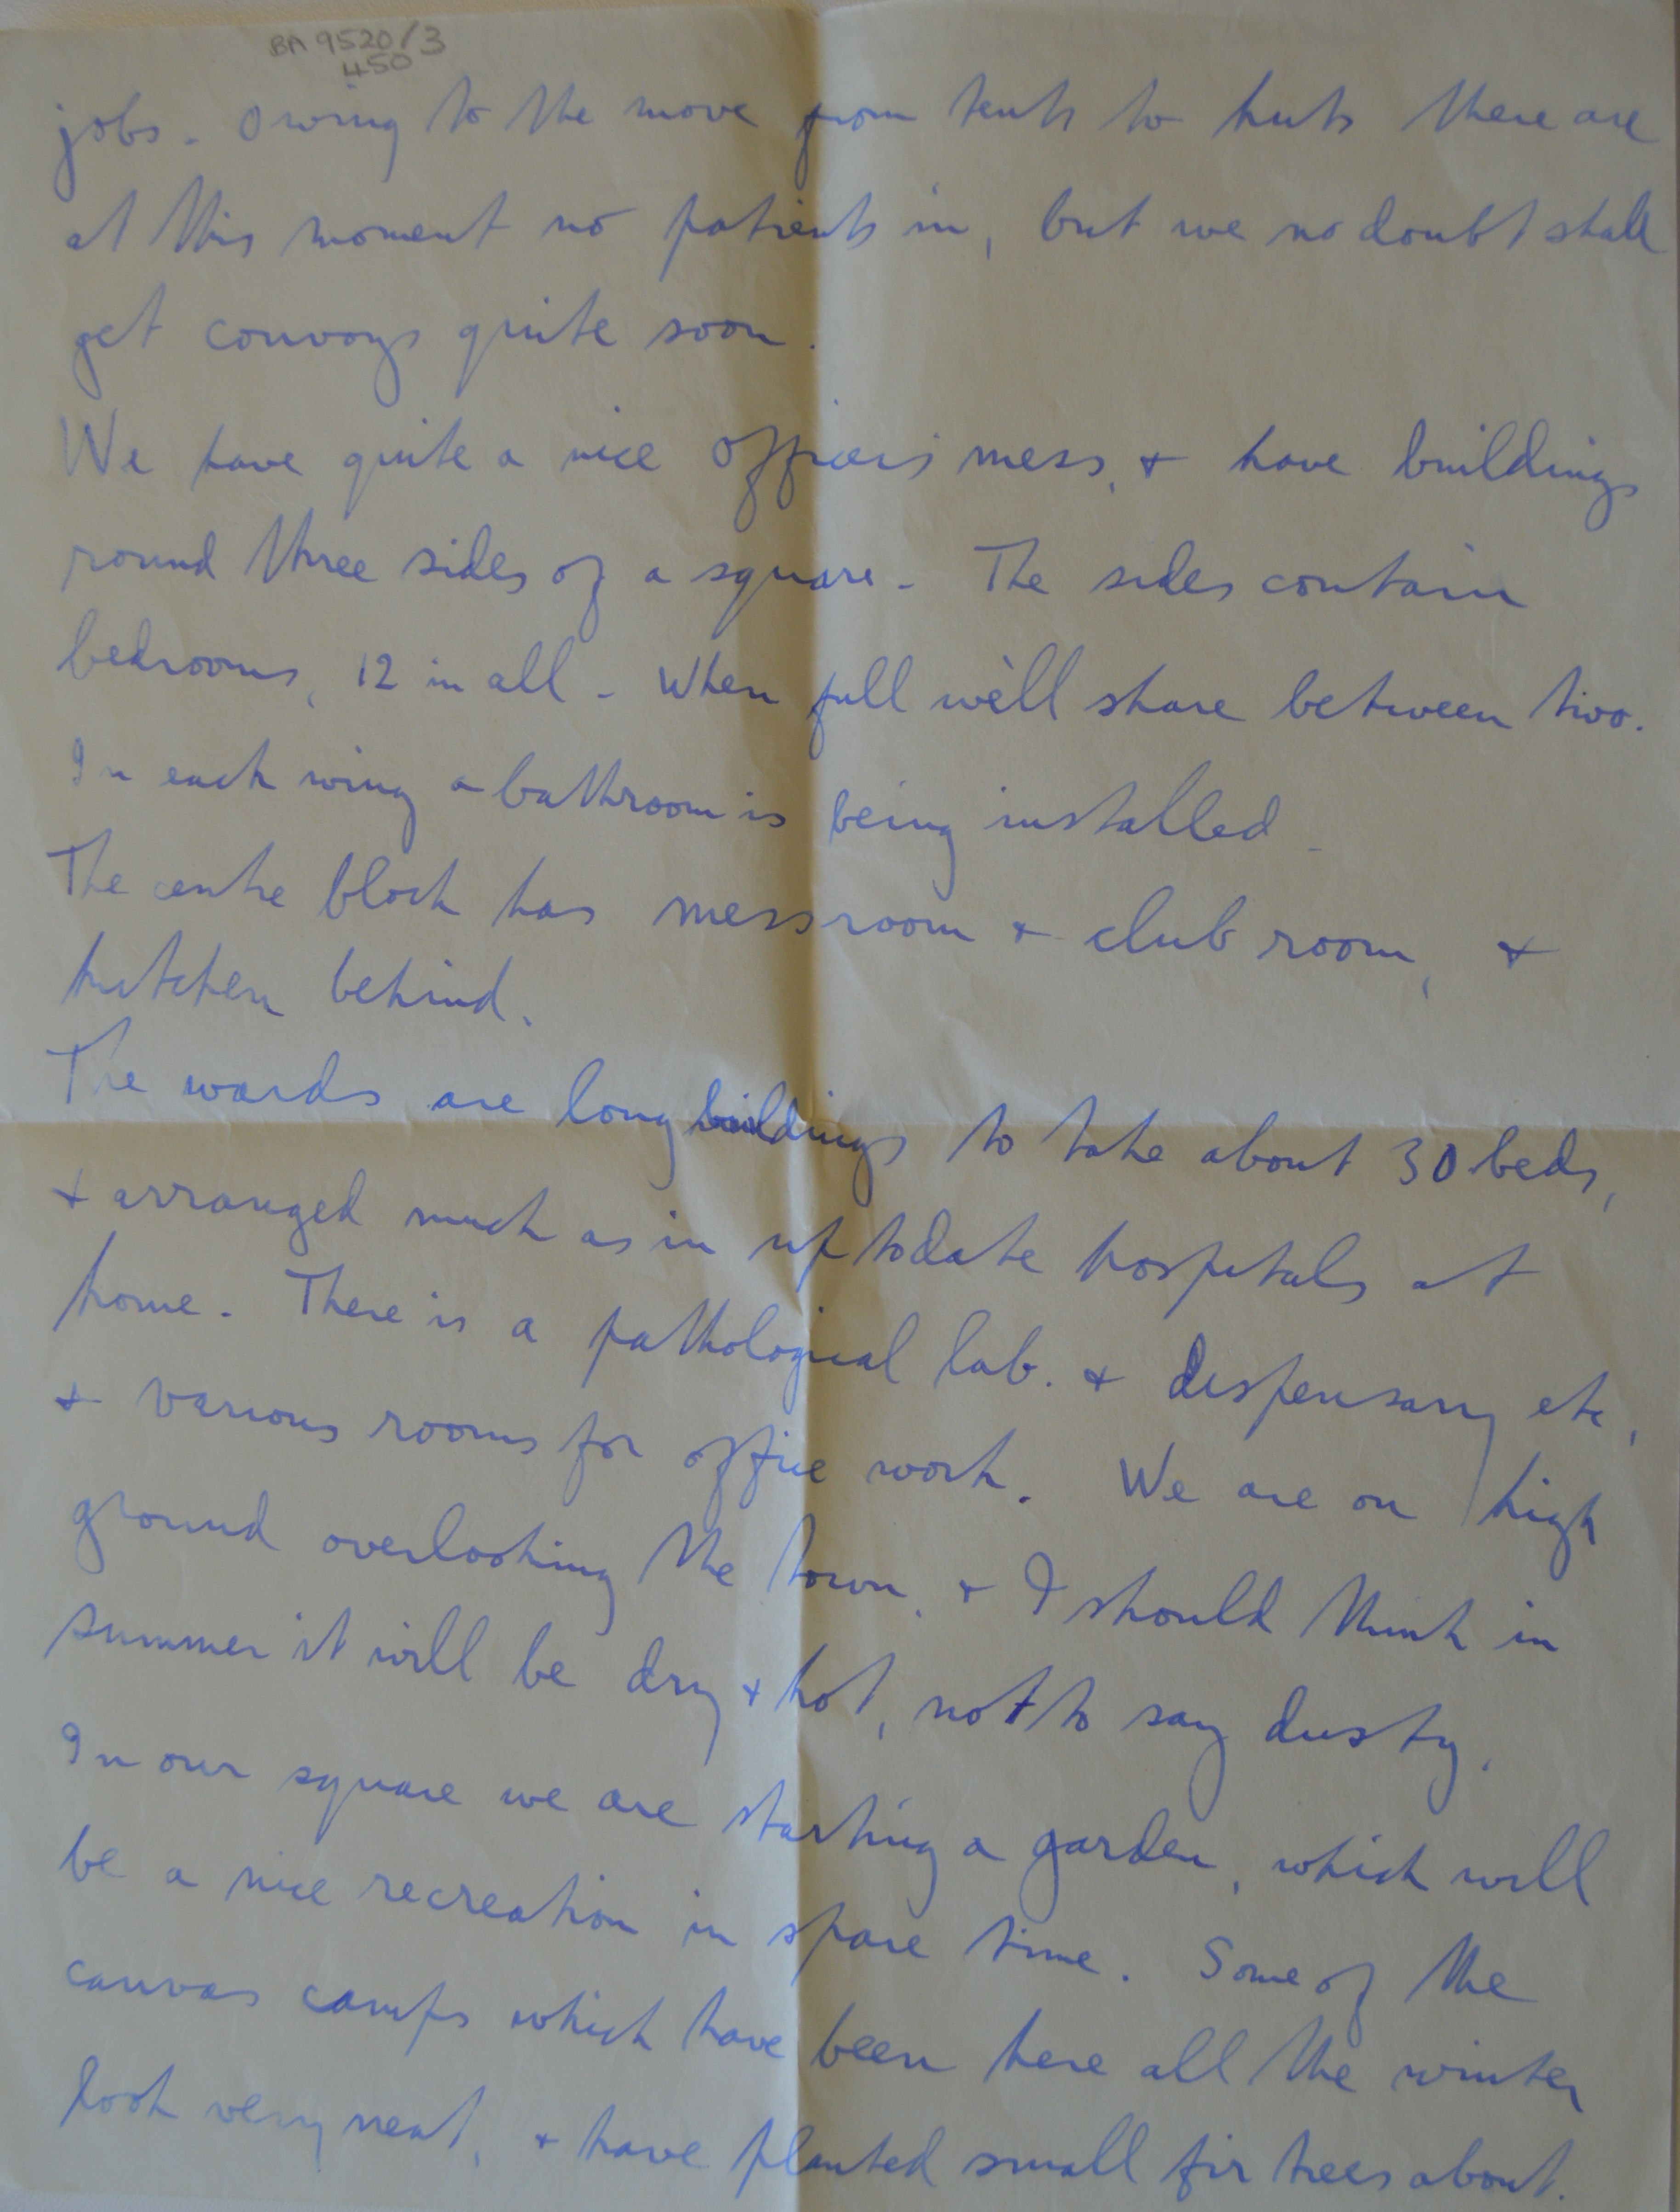 BA 9520/3
450
jobs. Owing to the move from tents to huts there are
at this moment no patients in, but we no doubt shall
get convoys quite soon.
We have quite a nice officers' mess, + have buildings
round three sides of a square. The sides contain
bedrooms, 12 in all. When full we'll share between two.
In each wing a bathroom is being installed.
The centre block has mess room + club room, +
kitchen behind.
The wards are long buildings to take about 30 beds,
+ arranged much as in up to date hospitals at
home. There is a pathological lab. + dispensary etc,
+ various rooms for office work. We are on high
ground overlooking the town, + I should think in
summer it will be dry + hot, not to say dusty.
In our square we are starting a garden, which will
be a nice recreation in spare time. Some of the
canvas camps which have been here all the winter
look very neat, + have planted small fir trees about.